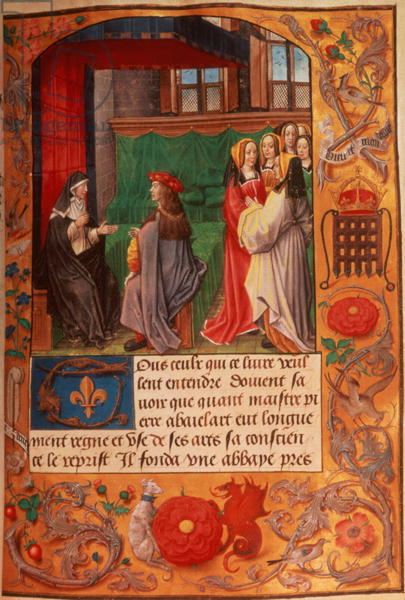 Dieu et mon
Tous ceulx qui ce liure veul
lent entendre doiuent sa
uoir que quant maistre pi
erre abaielart eut longue
ment regne et vse de ses ars sa conscien
ce le reprist Il fonda vne abbaye pres